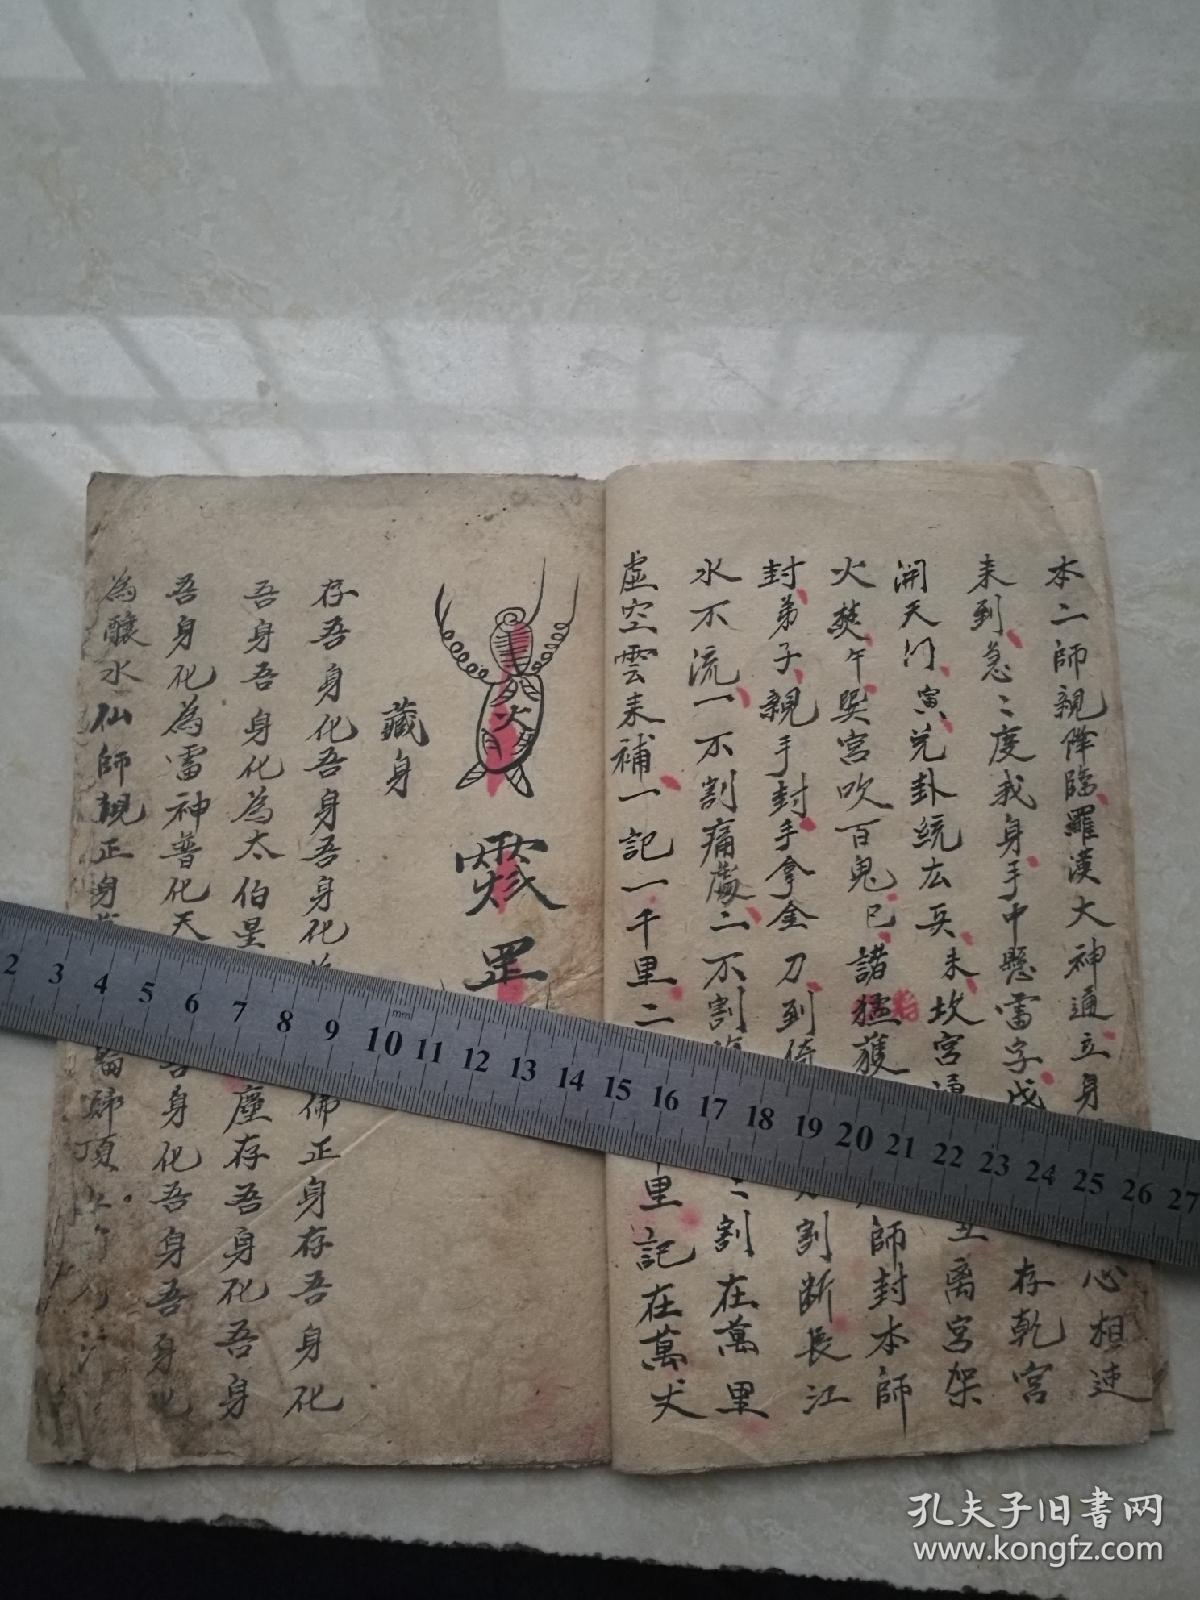 本二師親降臨羅漢大神通立身
心相連
来到急〻度我身手中懸雷字戌
存乾宮
開天门寅兑卦統広兵未坎宮
離宮架
火焚午巽宮吹百鬼巳諸猛
師封本師
封弟子親手封手拿金刀到
割断長江
水不流一不割痛處二不割
割在萬里
虚空雲来補一記一千里二
里記在萬丈
罡
藏身
存吾身化吾身吾身化
佛正身存吾身化
吾身吾身化為太伯星
塵存吾身化吾身
吾身化為雷神普化天
吾身化吾身吾身化
為釀水仙師親正身
頂
火
2 3 4 5 6 7 8 9 10 11 12 13 14 15 16 17 18 19 20 21 22 23 24 25 26 27
mm
孔夫子旧書网
www.kongfz.com